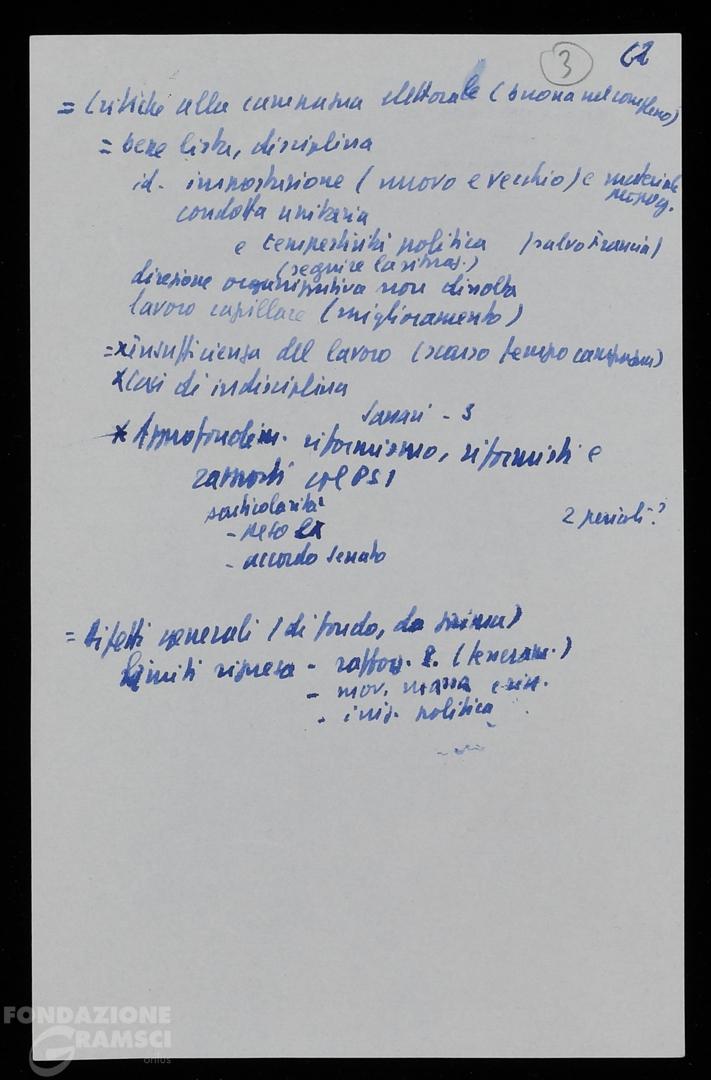 3 62
= Critiche alla campagna elettorale (buona nel complesso)
= bene lista, disciplina
id. impostazione (nuovo e vecchio) e materiale
propag.
condotta unitaria
e tempestività politica (salvo Francia)
(seguire la
direzione organizzativa non dissolta
lavoro capillare (miglioramento)
= x insufficienza del lavoro (scarso tempo
x Casi di indisciplina
Sassari - 3
x Approfondim. riformismo, riformisti e
rapporti col PSI
particolarità
- peso
- accordo Senato
2 pericoli?
= Difetti generali (di fondo, da prima)
Limiti ripresa - raffor. P. (tesseram.)
- mov. massa
- iniz. politica
FONDAZIONE
GRAMSCI
onlus